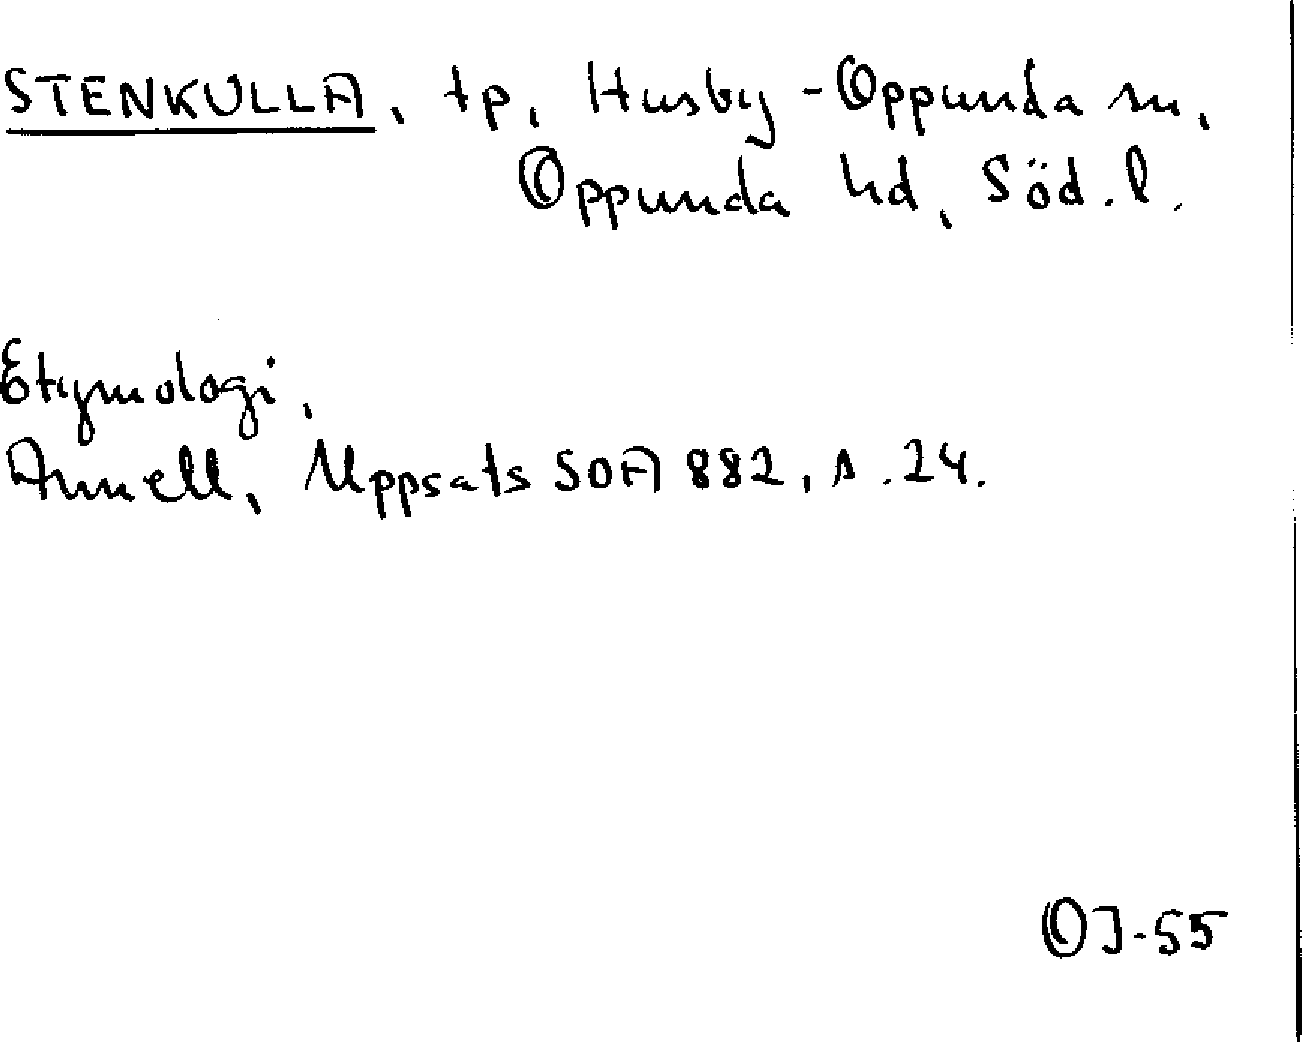 STENKULLA, tp, Husby-Oppunda sn,
Oppunda hd, Söd.l.
Etymologi,
Annell, Uppsats SOA 882, s.24.
OJ-55